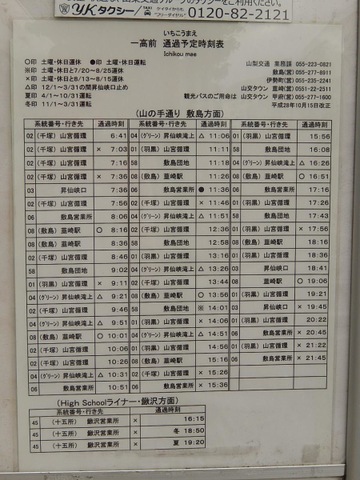 YKタクシー 0120-82-2121
いちこうまえ
一高前 通過予定時刻表
Ichikou mae
○印 土曜・休日運休 ●印 土曜・休日運行
※印 土曜・休日と7/20～8/25運休
×印 土曜・休日と8/13～8/15運休
△印 12/1～3/31の間昇仙峡口止
夏印 4/1～10/31運行
冬印 11/1～3/31運行
山梨交通 業務課 055-223-0821
敷島(営) 055-277-8911
伊勢町(営)
山交タウン 韮崎(営) 0551-22-2511
観光バスのご用命は 山交タウン 甲府(営)
平成28年10月15日改正
(山の手通り 敷島方面)
系統番号・行き先 通過時刻 系統番号・行き先 通過時刻 系統番号・行き先 通過時刻
02 (千塚) 山宮循環 6:41 04 (グリーン) 昇仙峡滝上 △ 11:06 01 (羽黒) 山宮循環 15:56
02 (千塚) 山宮循環 × 7:03 02 (千塚) 山宮循環 11:16 08 (敷島) 韮崎駅 16:16
02 (千塚) 山宮循環 7:16 58 敷島団地 11:18 58 敷島団地 16:28
03 昇仙峡口 7:36 06 敷島営業所 ● 11:36 06 敷島営業所 16:36
02 (千塚) 山宮循環 7:56 02 (千塚) 山宮循環 × 11:46 01 (羽黒) 山宮循環 16:51
06 敷島営業所 8:06 04 (グリーン) 昇仙峡滝上 △ 11:51 06 敷島営業所 17:16
08 (敷島) 韮崎駅 ○ 8:16 02 (千塚) 山宮循環 12:16 01 (羽黒) 山宮循環 17:31
08 (敷島) 韮崎駅 8:36 06 敷島営業所 12:36 58 敷島団地 17:43
02 (千塚) 山宮循環 8:46 02 (千塚) 山宮循環 12:46 01 (羽黒) 山宮循環 17:56
58 敷島団地 9:02 58 敷島団地 12:58 08 (敷島) 韮崎駅 18:16
01 (羽黒) 山宮循環 × 9:11 08 (敷島) 韮崎駅 13:16 01 (羽黒) 山宮循環 18:31
04 (グリーン) 昇仙峡滝上 △ 9:21 04 (グリーン) 昇仙峡滝上 △ 13:26 03 昇仙峡口 18:41
02 (千塚) 山宮循環 9:46 02 (千塚) 山宮循環 13:46 08 韮崎駅 ○ 19:06
04 (グリーン) 昇仙峡滝上 △ 9:51 08 (敷島) 韮崎駅 ○ 13:56 01 (羽黒) 山宮循環 19:21
08 (敷島) 韮崎駅 ○ 10:01 58 敷島団地 ※ 14:01 03 昇仙峡口 19:45
02 (千塚) 山宮循環 10:06 02 (千塚) 山宮循環 14:16 01 (羽黒) 山宮循環 20:22
02 (千塚) 山宮循環 × 10:31 02 (千塚) 山宮循環 14:51 06 敷島営業所 × 20:45
04 (グリーン) 昇仙峡滝上 △ 10:31 08 (敷島) 韮崎駅 15:16 01 (羽黒) 山宮循環 × 21:22
06 敷島営業所 10:51 02 (千塚) 山宮循環 15:26 06 敷島営業所 × 21:45
06 敷島営業所 × 15:36
(High Schoolライナー・鰍沢方面)
系統番号・行き先 通過時刻
45 (十五所) 鰍沢営業所 × 16:15
45 (十五所) 鰍沢営業所 × 冬 18:50
45 (十五所) 鰍沢営業所 × 夏 19:20